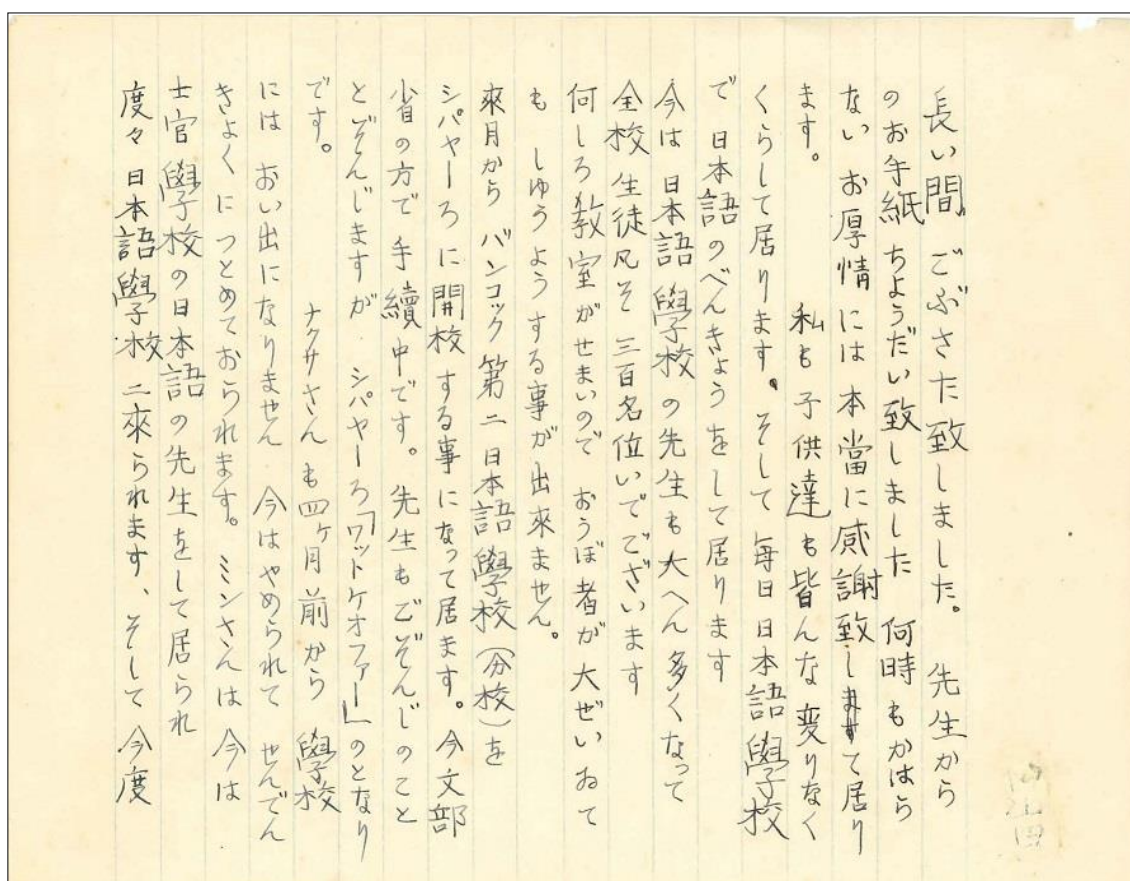 長い間 ごぶさた致しました。 先生から
のお手紙 ちようだい致しました 何時もかはら
ない お厚情には本當に感謝致しますて居り
ます。 私も子供達も皆んな変りなく
くらして居ります。そして 毎日 日本語學校
で 日本語のべんきようをして居ります
今は 日本語 學校の先生も大へん多くなって
全校 生徒凡そ 三百名位いでございます
何しろ教室がせまいので おうぼ者が大ぜいおて
も しゆうようする事が出來ません。
來月から バンコック 第二 日本語學校(分校)を
シパヤーろに開校する事になって居ます。今文部
省の方で手續中です。先生もごぞんじのこと
とぞんじますが シパヤーろ「ワットケオファー」のとなり
です。 ナクサさんも四ヶ月前から 學校
には おい出になりません 今はやめられて せんでん
きよくにつとめておられます。ミンさんは 今は
士官學校の日本語の先生をして居られ
度々 日本語學校ニ來られます、そして 今度